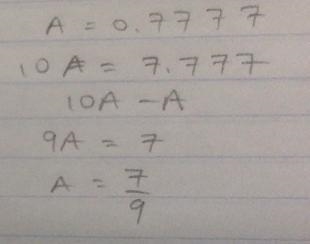 A = 0.7777
10A = 7.777
10A - A
9A = 7
A = 7/9